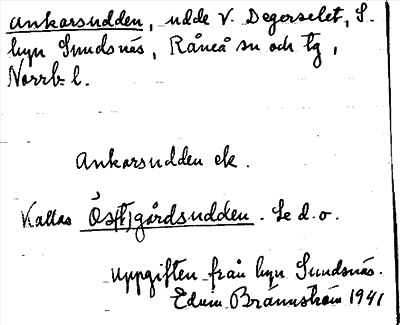 Ankarsudden, udde V. Degerselet, S.
byn Sundsnäs, Råneå sn och tg,
Norrb. l.
Ankarsudden ek.
Kallas Ös(t)gårdsudden. Se d.o.
Uppgiften från byn Sundsnäs.
Edvin Brännström 1941